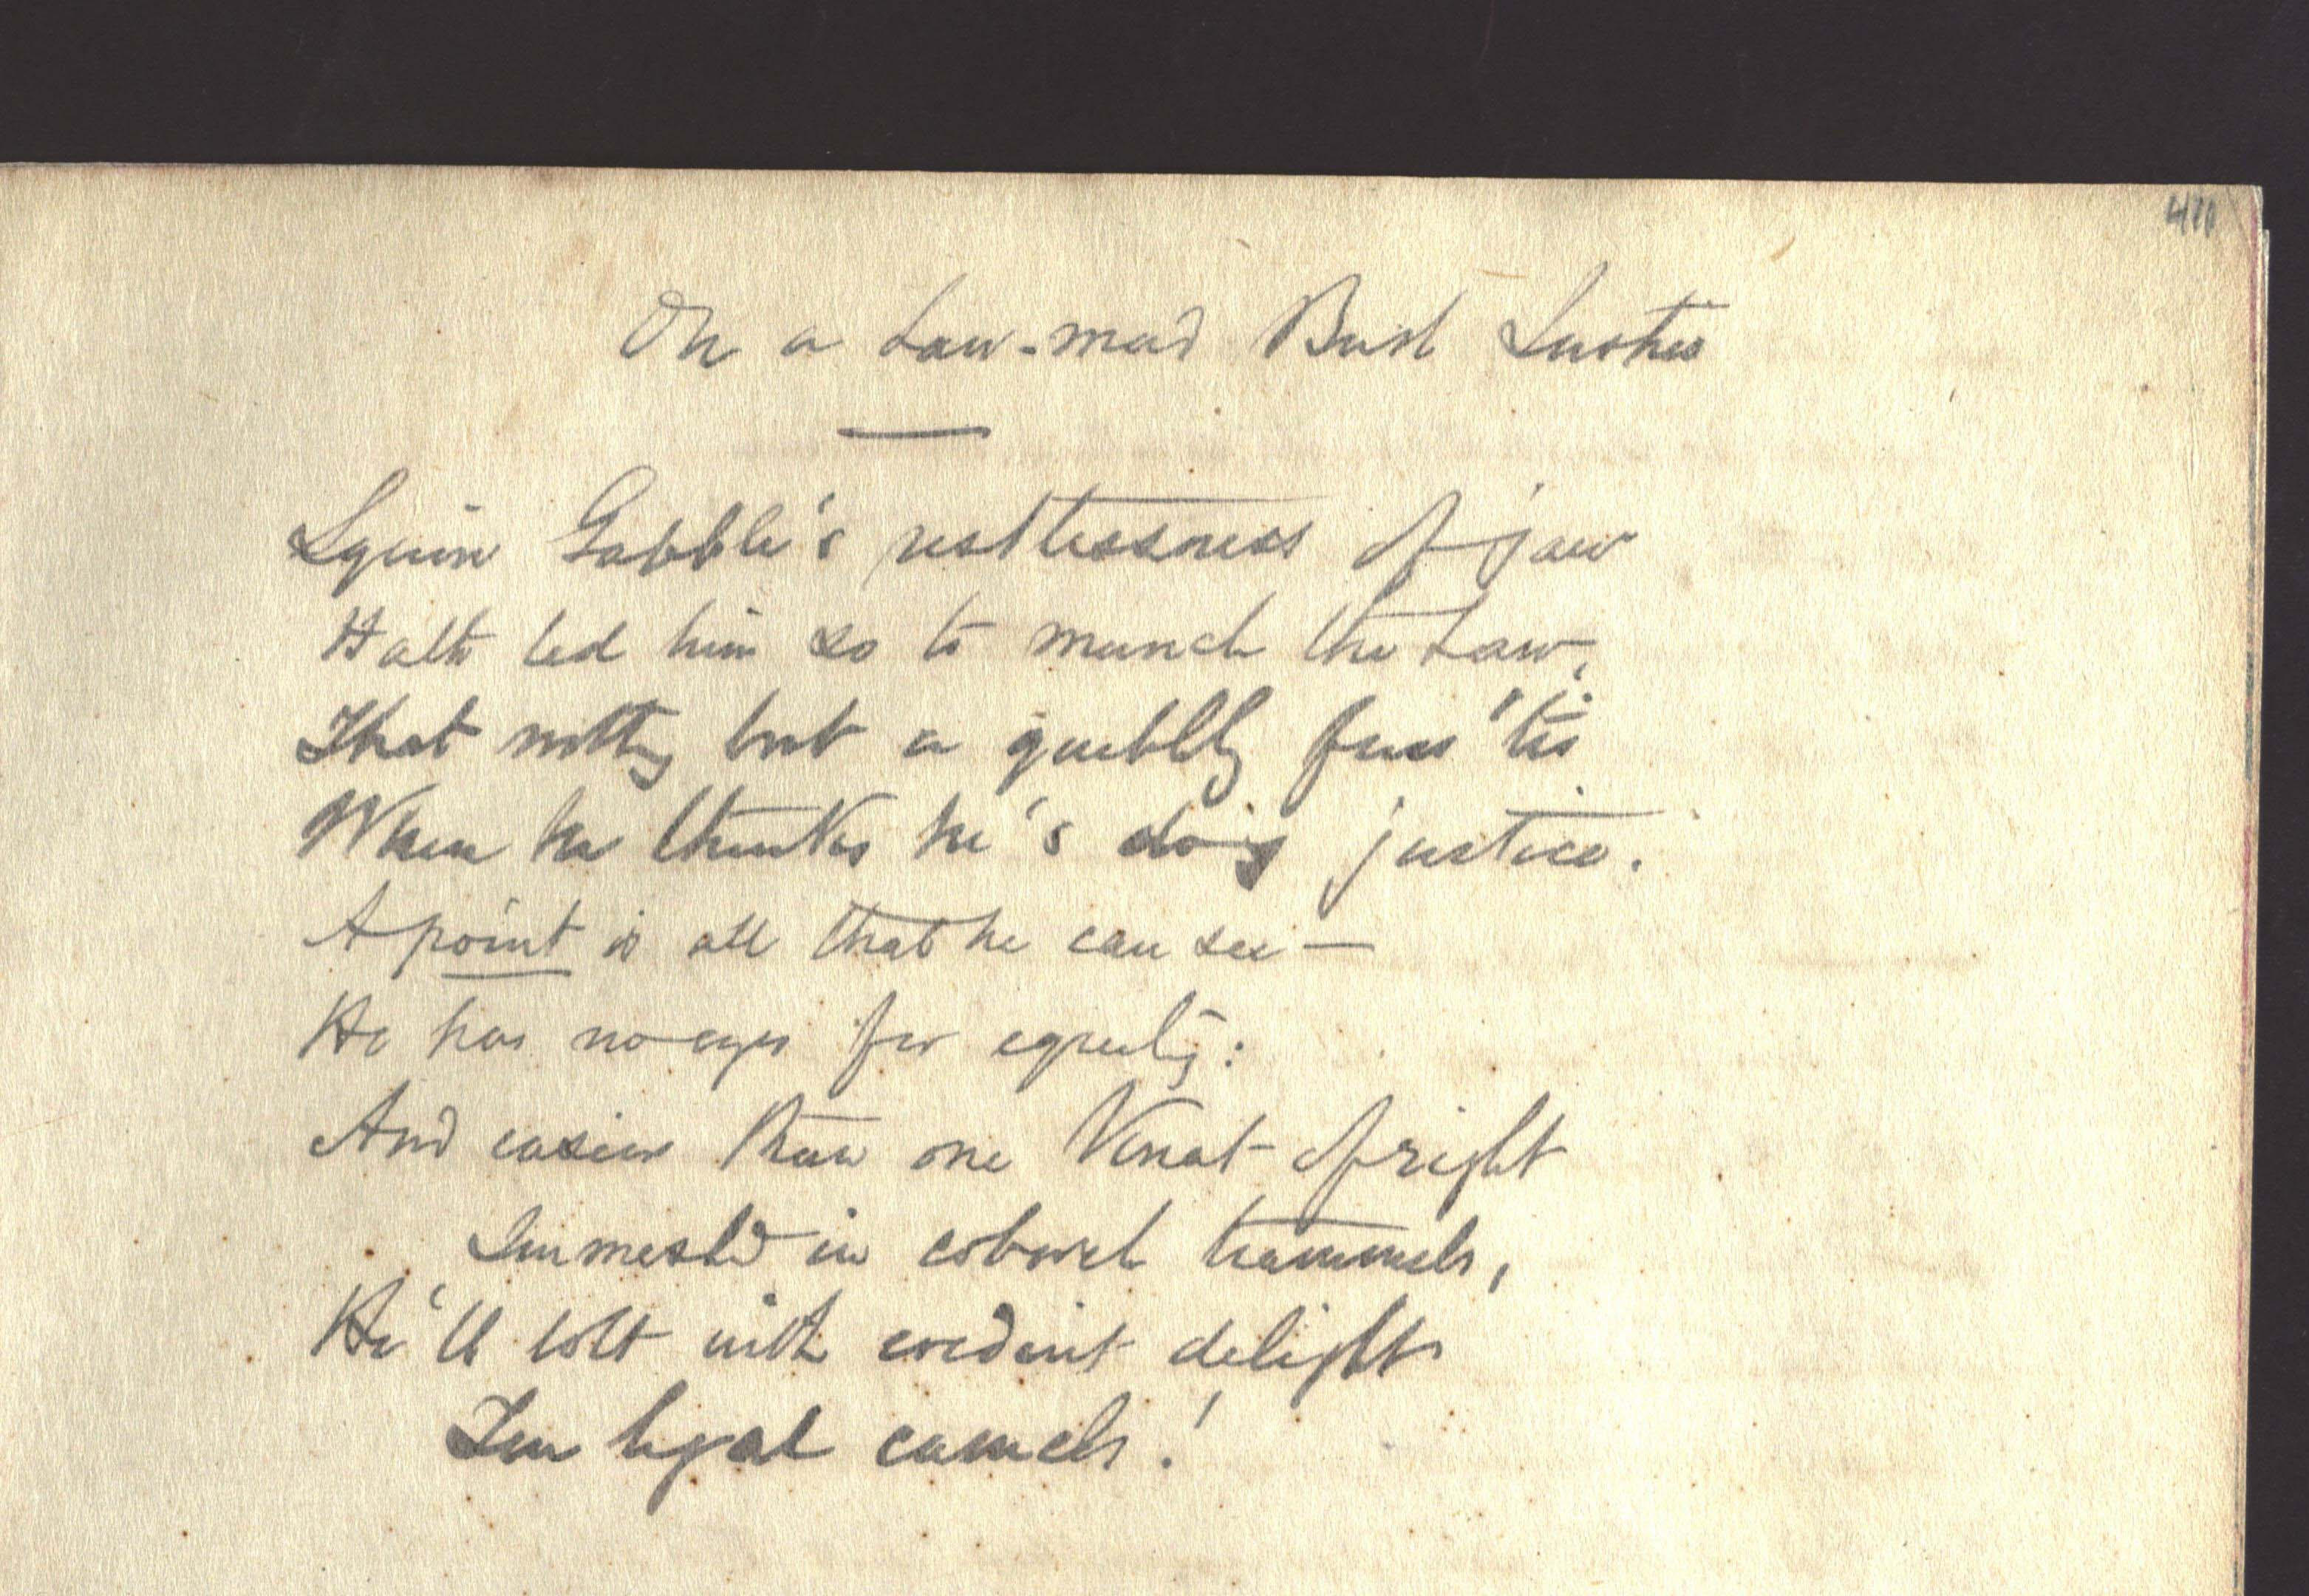 410
On a Law-mad Bush Justice
Squire Gabble's restlessness of jaw
Hath led him so to munch the Law,
That nothing but a quibbly fuss 'tis
When he thinks he's doing justice.
A point is all that he can see —
He has no eyes for equity:
And easier than one Knat of right
Immesh'd in cobweb trammels,
He'll bolt with evident delight
Ten legal camels!